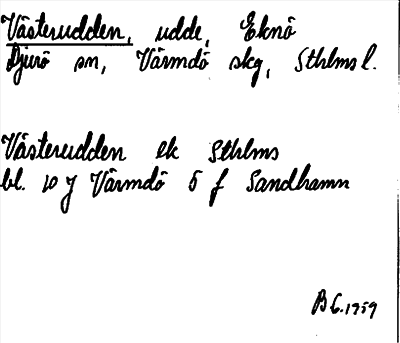 Västerudden, udde, Eknö
Djurö sn, Värmdö skg, Sthlms l.
Västerudden ek Sthlms
bl. 10 J Värmdö 5 f Sandhamn
B G. 1959